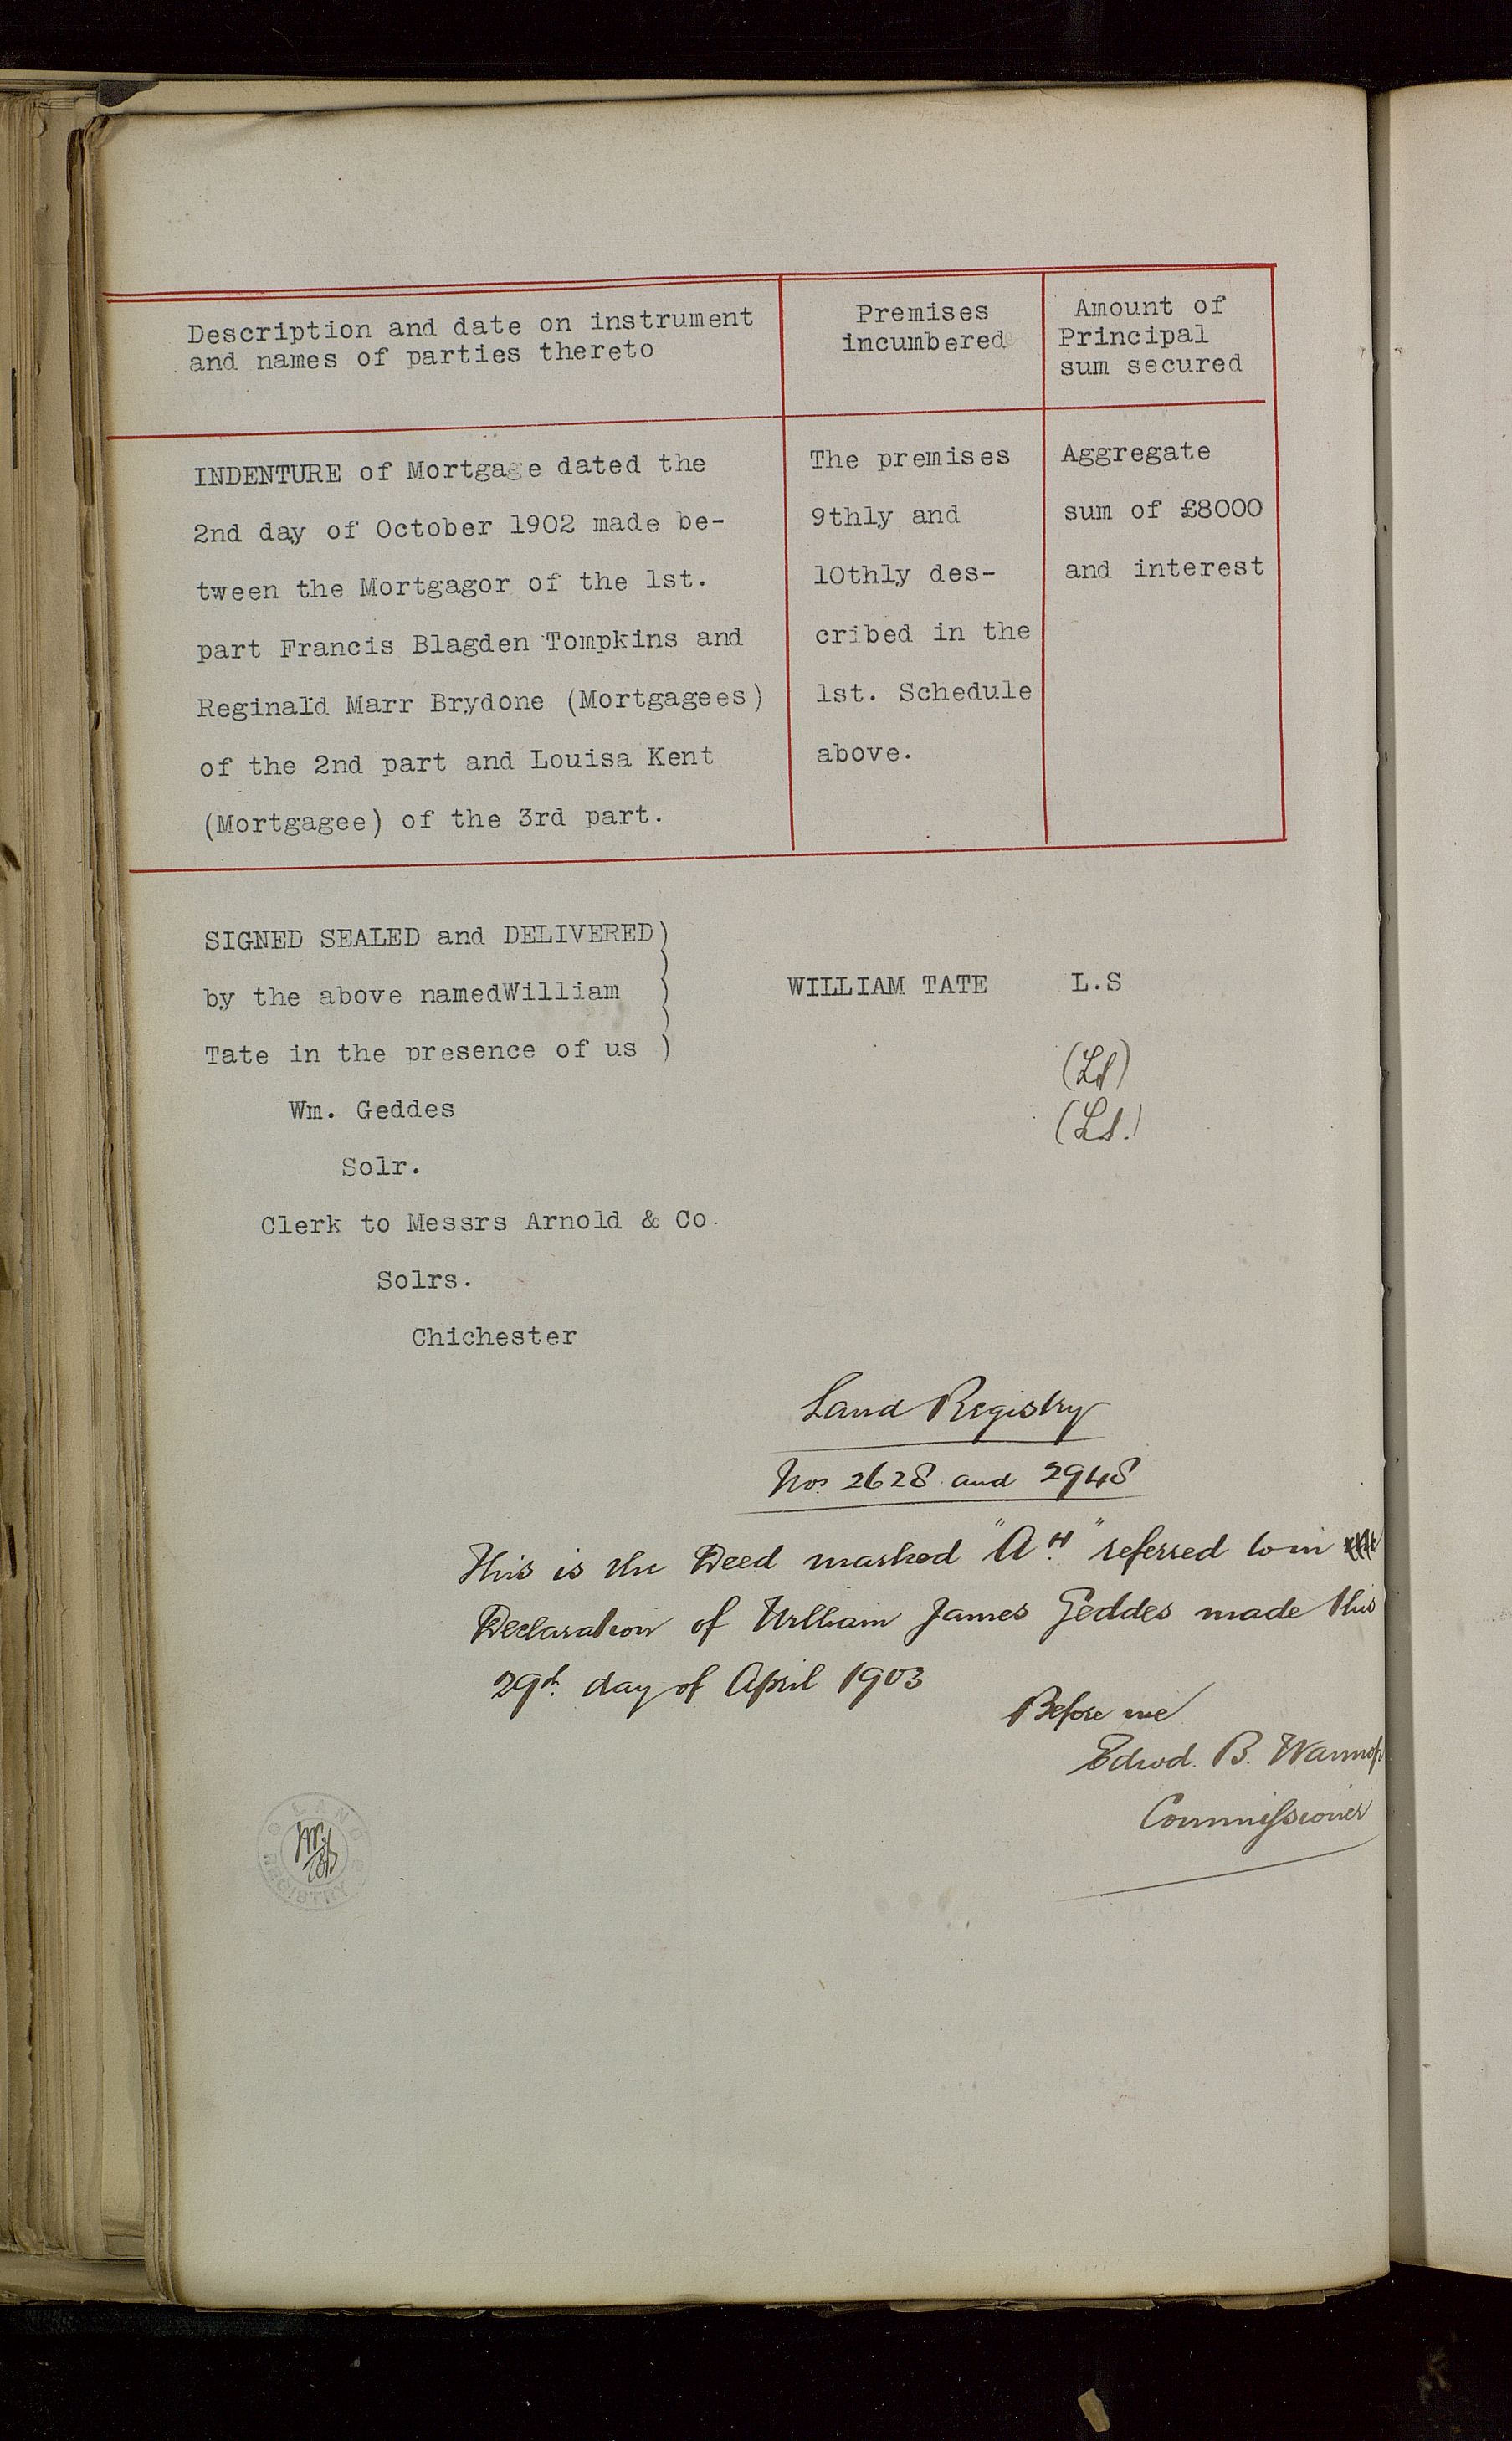 Description and date on instrument
and names of parties thereto
Premises
incumbered
Amount of
Principal
sum secured
INDENTURE of Mortgage dated the
2nd day of October 1902 made be-
tween the Mortgagor of the 1st.
part Francis Blagden Tompkins and
Reginald Marr Brydone (Mortgagees)
of the 2nd part and Louisa Kent
(Mortgagee) of the 3rd part.
The premises
9thly and
10thly des-
cribed in the
1st. Schedule
above.
Aggregate
sum of £8000
and interest
SIGNED SEALED and DELIVERED)
by the above namedWilliam )
Tate in the presence of us )
WILLIAM TATE L.S
(LS)
(LS.)
Wm. Geddes
Solr.
Clerk to Messrs Arnold & Co.
Solrs.
Chichester
Land Registry
Nos 2628 and 2948
This is the Deed marked "A" referred to in
Declaration of William James Geddes made this
29th day of April 1903
Before me
Edwd. B.
Commissioner
LAND
REGISTRY